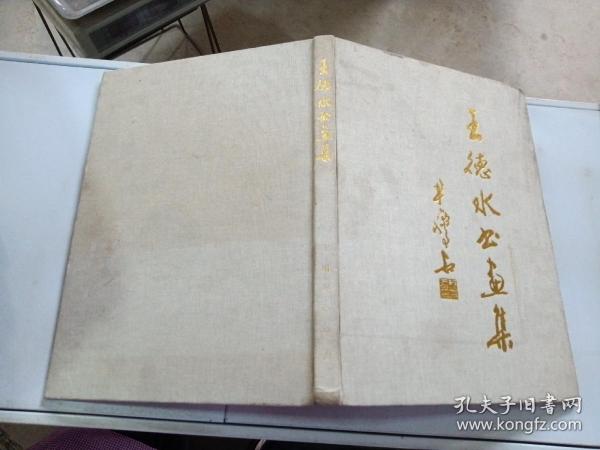 王德水书画集
王德水书画集
孔夫子旧书网
www.kongfz.com